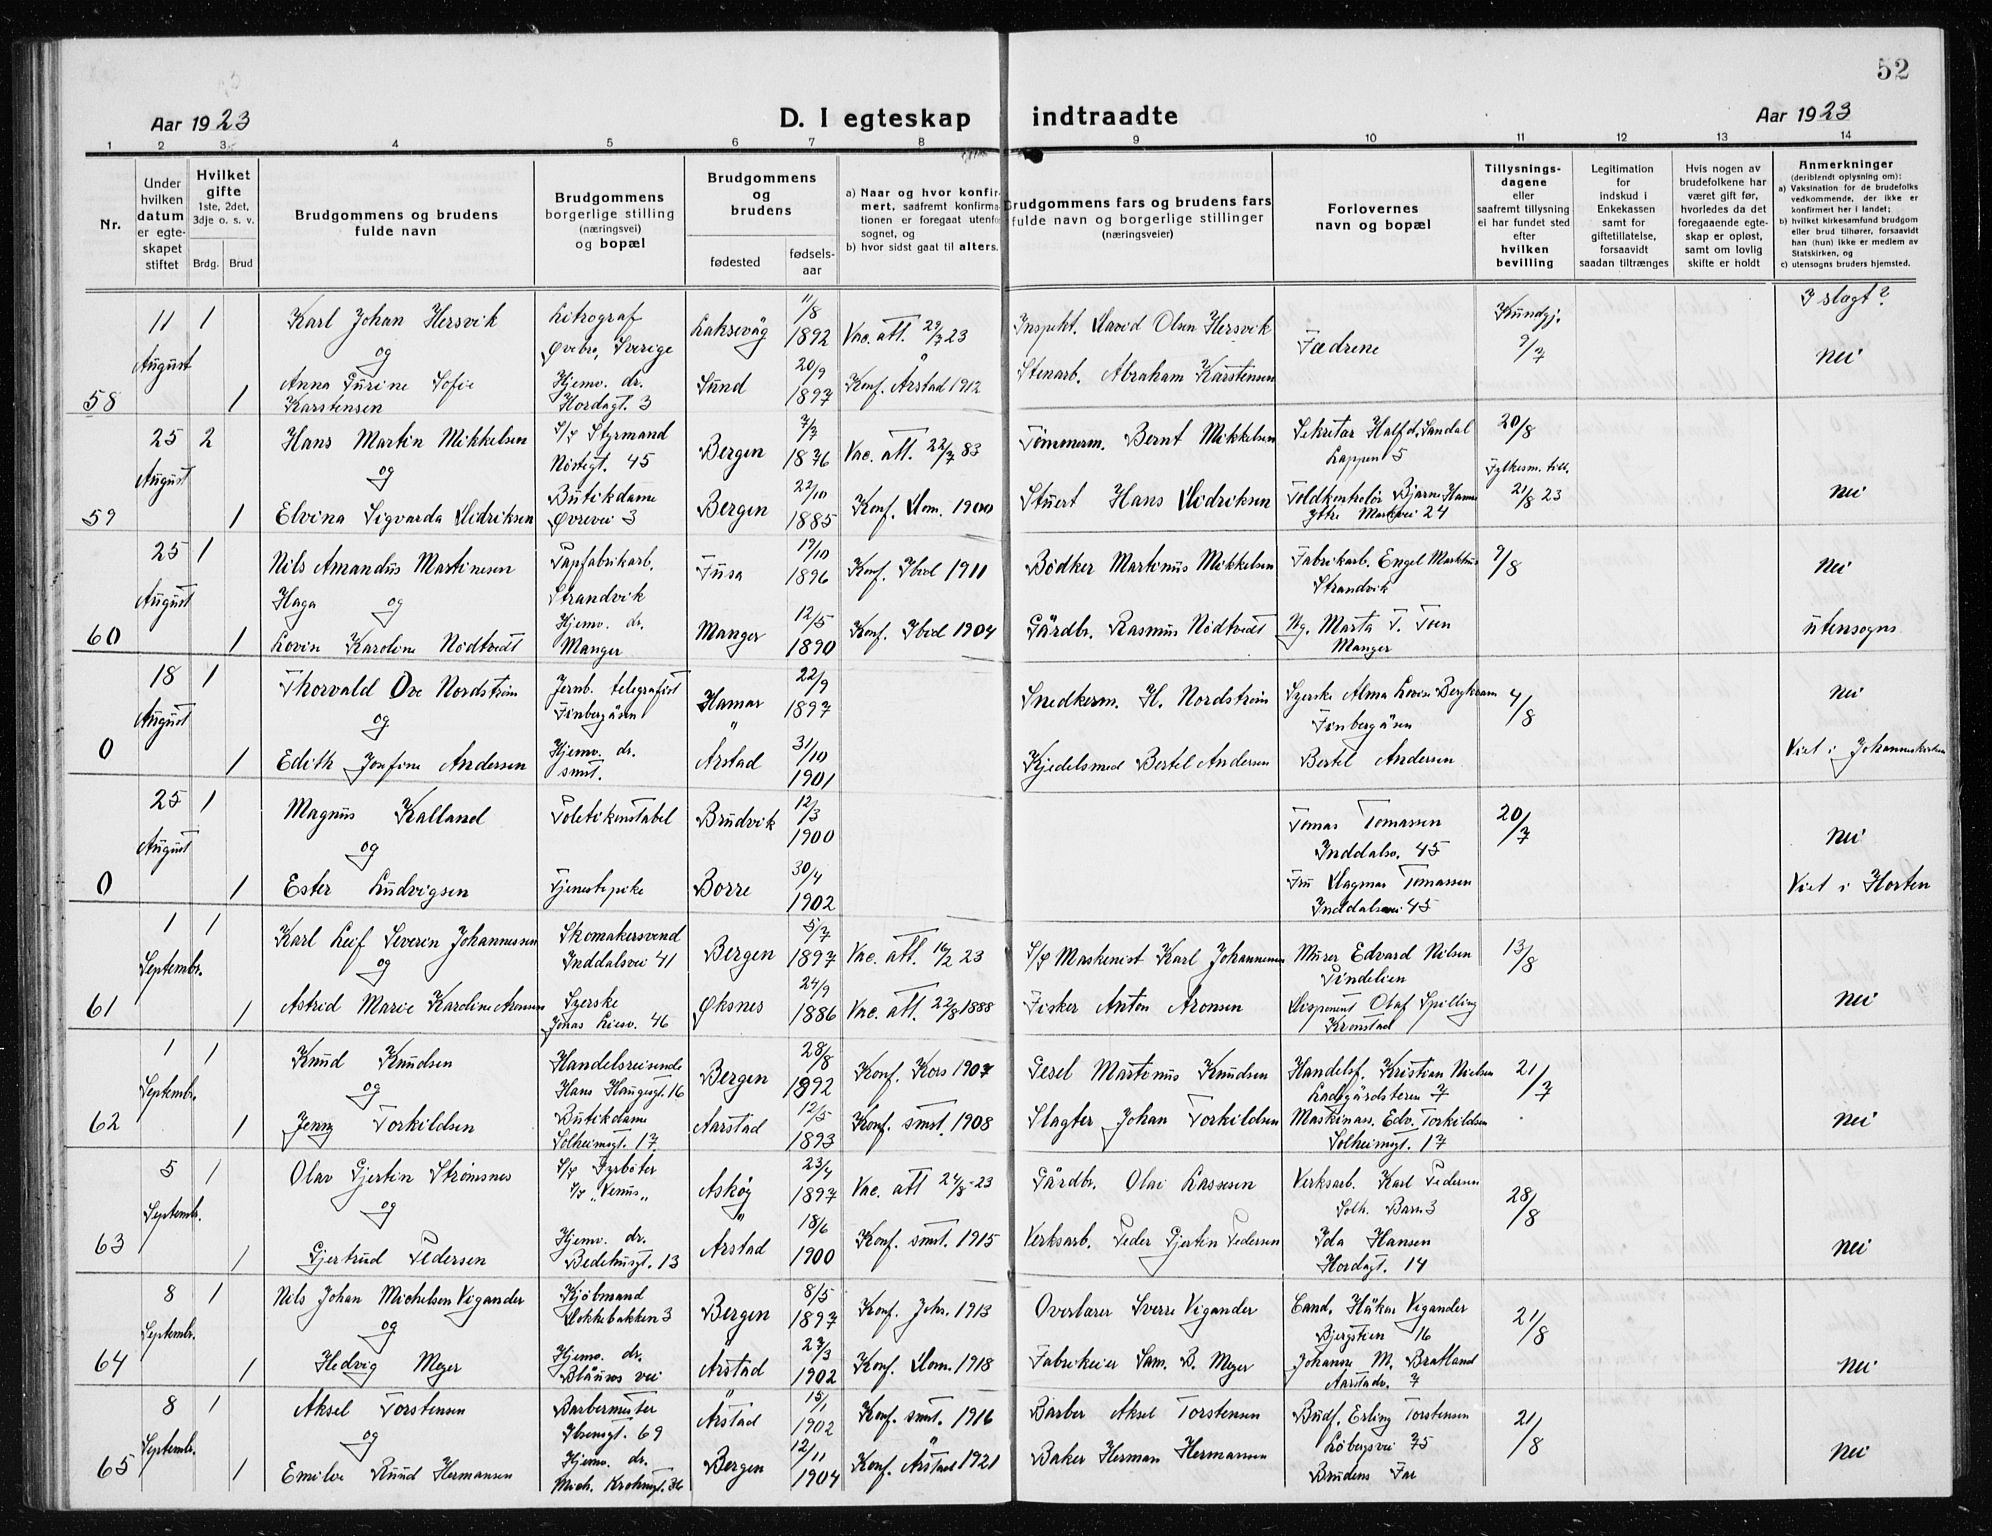 52
Aar 1923
D. I egteskap indtraadte
Aar 1923
1 2 3 4 5 6 7 8 9 10 11 12 13 14
Nr.
Under hvilken datum er egteskapet stiftet
Hvilket gifte 1ste, 2det, 3dje o. s. v.
Brdg. Brud
Brudgommens og brudens fulde navn
Brudgommens borgerlige stilling (næringsvei) og bopæl
Brudgommens og brudens
fødested
fødsels-aar
a) Naar og hvor konfirmert, saafremt konfirmationen er foregaat utenfor sognet, og
b) hvor sidst gaat til alters.
Brudgommens fars og brudens fars fulde navn og borgerlige stillinger (næringsveier)
Forlovernes navn og bopæl
Tillysnings-dagene eller saafremt tillysning ei har fundet sted efter hvilken bevilling
Legitimation for indskud i Enkekassen samt for giftetillatelse, forsaavidt saadan tiltrænges
Hvis nogen av brudefolkene har været gift før, hvorledes da det foregaaende egteskap er opløst, samt om lovlig skifte er holdt
Anmerkninger (deriblendt oplysning om):
a) Vaksination for de brudefolks vedkommende, der ikke er konfirmert her i landet;
b) hvilket kirkesamfund brudgom eller brud tilhører, forsaavidt han (hun) ikke er medlem av Statskirken, og
c) utensogns bruders hjemsted.
58
11 August 1
Karl Johan Hersvik
Litograf Örebro, Sverige
Laksevåg 11/8 1892
Vac. att. 29/3 23
Inspekt. David Olsen Hersvik
Fædrene
Kundgj. 9/7
I slegt? nei
og
1 Anna Gurine Sofie Karstensen
Hjemv. dr. Hordagt. 3
Sund 20/9 1897
Konf. Årstad 1912
Stenarb. Abraham Karstensen
59
25 August 2
Hans Martin Mikkelsen
S/s Styrmand Nøstegt. 45
Bergen 7/7 1876
Vac. att. 22/7 83
Tømmerm. Bernt Mikkelsen
Sekretær Halfd. Sandal Lappen 5
20/8
Fylkesm. till. 21/8 23
nei
og
1 Elvina Sigvarda Didriksen
Butikdame Øvrevei 3
Bergen 22/10 1885
Konf. Dom. 1900
Stuert Hans Didriksen
Toldkontrolør Bjarne Hamre Ytre Markvei 24
60
25 August 1
Nils Amandus Martinesen Haga
Papfabrikarb. Strandvik
Fusa 19/10 1896
Konf. Ibid 1911
Bødker Martinus Mikkelsen
Fabrikarb. Engel Markhus Strandvik
9/8
nei
og
1 Lovise Karoline Nødtvedt
Hjemv. dr. Manger
Manger 12/5 1890
Konf. Ibid 1904
Gårdbr. Rasmus Nødtvedt
Ng. Marta T. Toen Manger
utensogns
0
18 August 1
Thorvald Ove Nordstrøm
Jernb. telegrafist Finbergåsen
Hamar 22/9 1897
Snedkerm. H. Nordstrøm
Syerske Alma Lovise Bergkvam Finbergåsen
4/8
nei
og
1 Edith Josefine Andersen
Hjemv. dr. smst.
Årstad 31/10 1901
Kjedelsmed Bertel Andersen
Bertel Andersen
Viet i Johanneskirken
0
25 August 1
Magnus Kalland
Politikonstabel
Brudvik 12/3 1900
Tomas Tomassen Inddalsv. 45
20/7
nei
og
1 Ester Ludvigsen
Tjenestepike
Borre 30/4 1902
Fru Dagmar Tomassen Inddalsvei 45
Viet i Horten
61
1 Septembr. 1
Karl Leif Severin Johannesen
Skomakersvend Inddalsvei 41
Bergen 5/7 1897
Vac. att. 16/2 23
S/s Maskinist Karl Johannesen
Murer Edvard Nilsen Tindelien
13/8
og
1 Astrid Marie Karoline Aronsen
Syerske Jonas Liesv. 46
Øksnes 24/9 1886
Vac. att. 22/8 1888
Fisker Anton Aronsen
Disponent Olaf Spilling Kronstad
nei
62
1 Septembr. 1
Knud Knudsen
Handelsreisende Hans Haugesgt. 16
Bergen 28/8 1892
Konf. Kors 1907
Gesel Martinus Knudsen
Handelsf. Kristian Nielsen Ladegårdsteren 7
21/7
og
1 Jenny Torkildsen
Butikdame Solheimsgt. 17
Aarstad 12/5 1893
Konf. smst. 1908
Slagter Johan Torkildsen
Maskinass. Edv. Torkildsen Solheimsgt. 17
nei
63
5 Septembr. 1
Olav Gjertin Strømsnes
S/s Fyrbøter S/s "Venus"
Askøy 23/4 1897
Vac. att 24/8-23
Gårdbr. Olai Lassesen
Verksarb. Karl Pedersen Solh. Barn 3
28/8
og
1 Gjertrud Pedersen
Hjemv. dr. Bedehusgt. 13
Årstad 18/6 1900
Konf. smst. 1915
Verksarb. Peder Gjertin Pedersen
Ida Hansen Hordagt. 14
nei
64
8 Septembr. 1
Nils Johan Michelsen Vigander
Kjøbmand Dokkebakken 3
Bergen 8/5 1897
Konf. Joh. 1913
Overlærer Sverre Vigander
Cand. Håkon Vigander Bjergstien 16
21/8
og
1 Hedvig Meyer
Hjemv. dr. Blåuros vei
Årstad 27/3 1902
Konf. Dom. 1918
Fabrikeier Sam. B. Meyer
Johanne M. Bratland Aarstadv. 7
nei
65
8 Septembr. 1
Aksel Torstensen
Barbermester Ibsensgt. 69
Årstad 15/1 1902
Konf. smst. 1916
Barber Aksel Torstensen
Budf. Erling Torstensen Løbergsvei 75
21/8
og
1 Emilie Ruud Hermansen
Hjemv. dr. Mich. Krohnsgt. 36
Bergen 12/11 1904
Konf. Årstad 1921
Baker Herman Hermansen
Brudens Far
nei